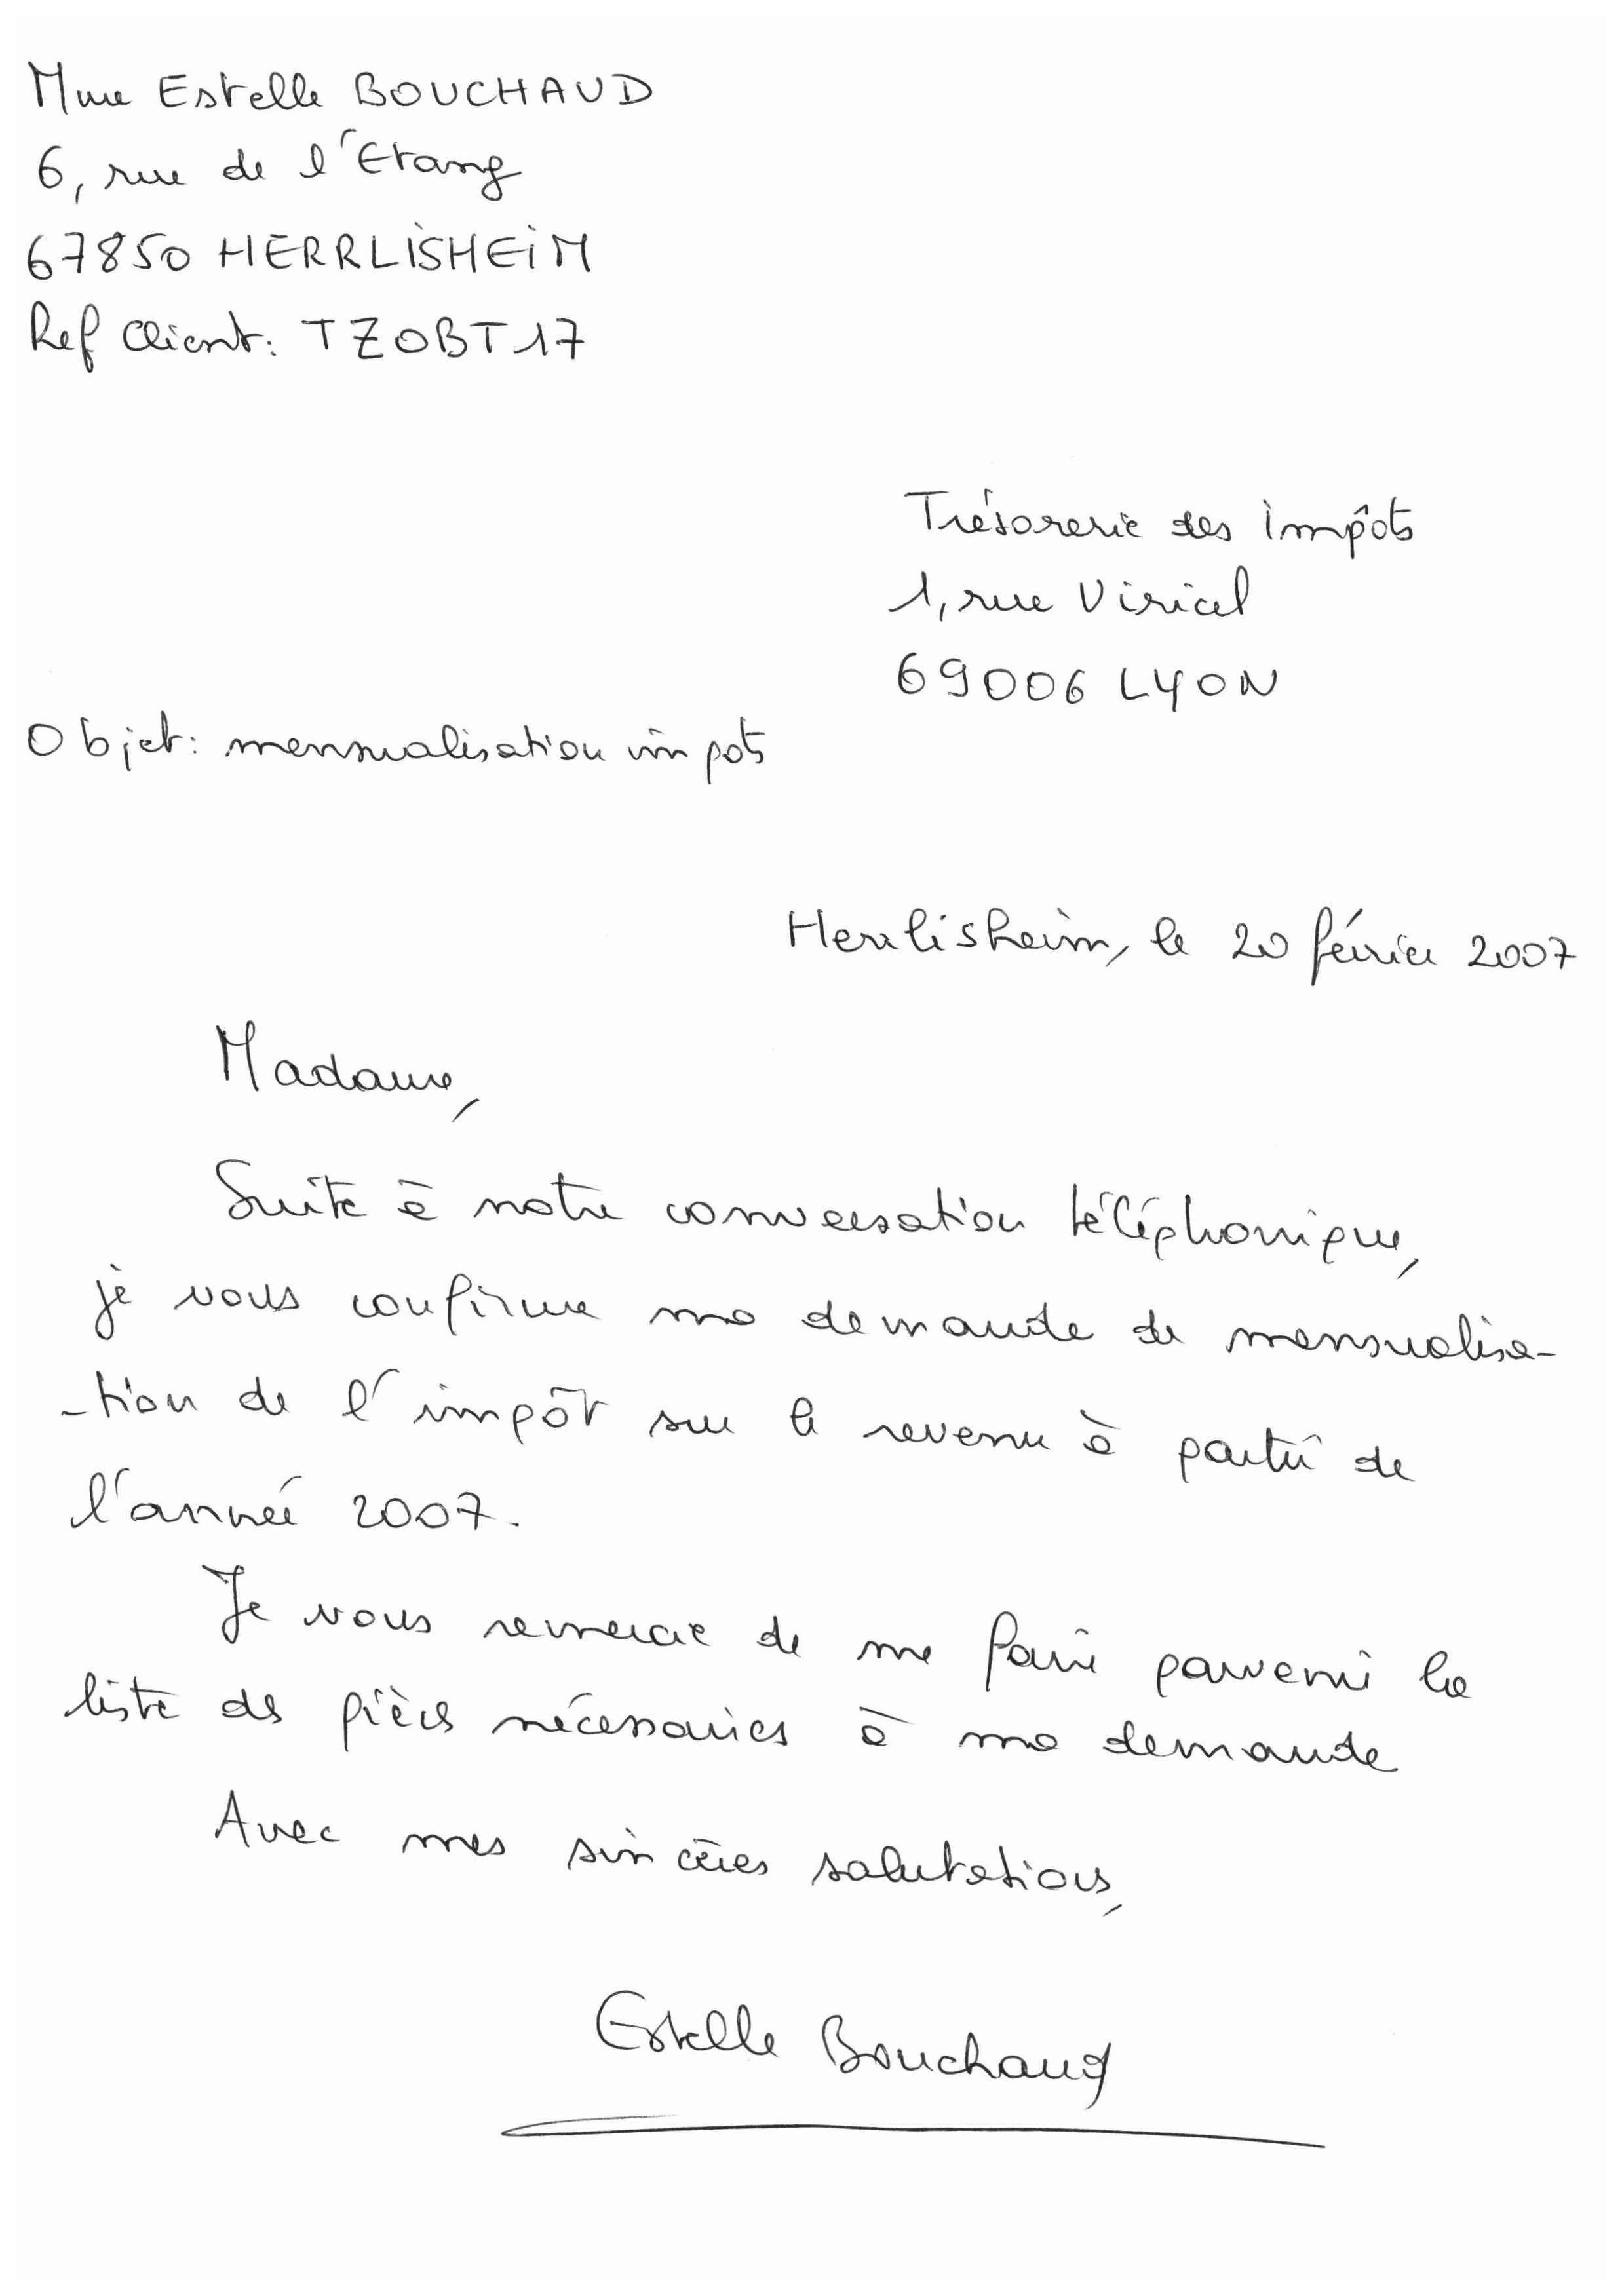 Mme Estelle BOUCHAUD
6, rue de l'Etang
67850 HERRLISHEIM
Ref Client: TZOBT17
Trésorerie des impôts
1, rue Viricel
69006 LYON
Objet: mensualisation impots
Herrlisheim, le 20 février 2007
Madame,
Suite à notre conversation téléphonique,
je vous confirme ma demande de mensualisa-
-tion de l'impôt sur le revenu à partir de
l'année 2007.
Je vous remercie de me faire parvenir la
liste des pièces nécessaires à ma demande
Avec mes sincères salutations,
Estelle Bouchaud